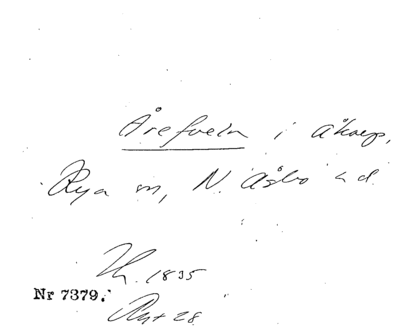 Årefveln i Åkarp,
Rya sn, N. Åsbo hd
Hg. 1835
Nr 7379.
Ryt 28